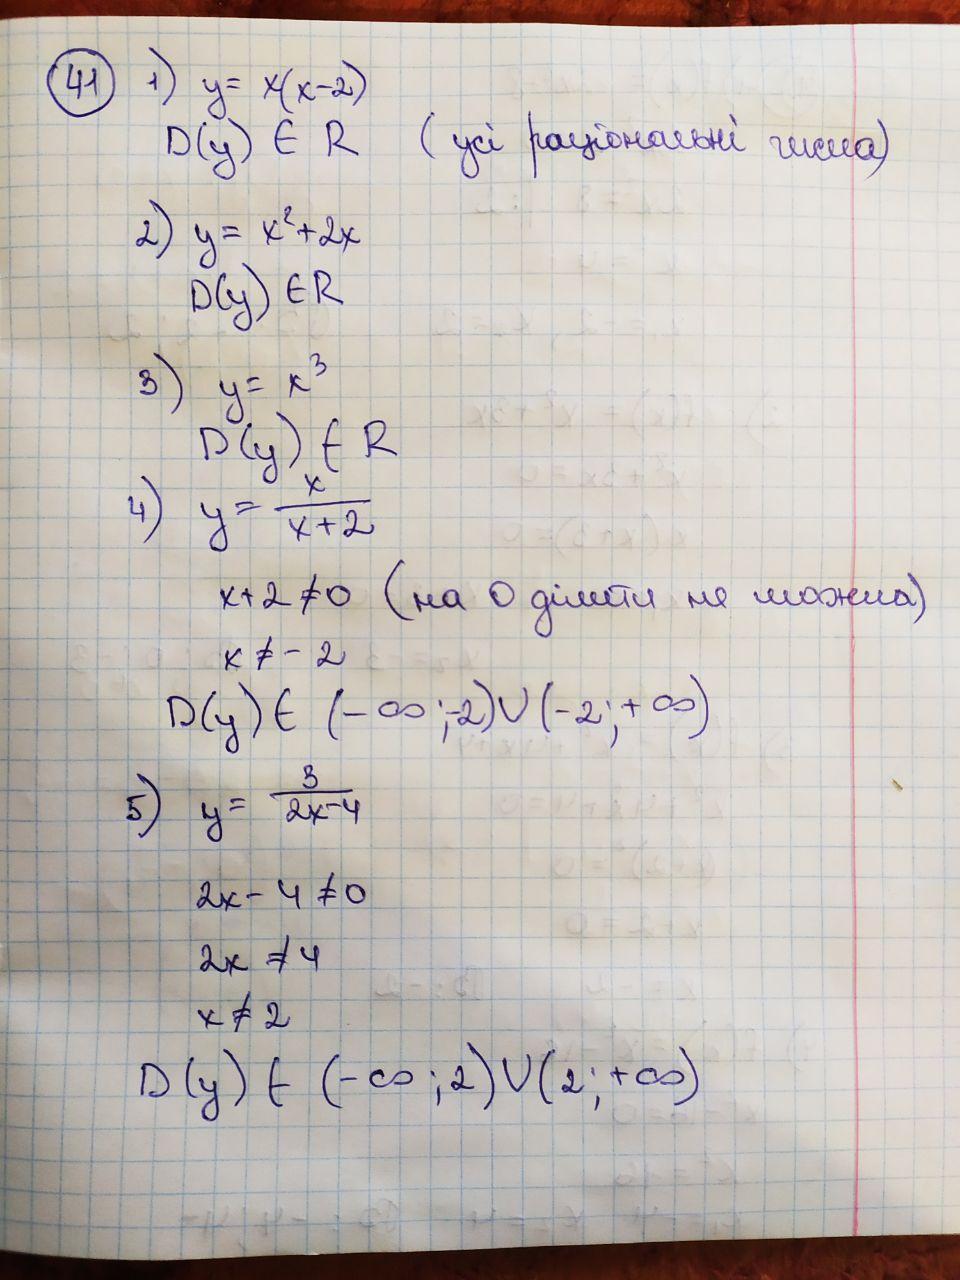 41 1) y = x(x-2)
D(y) ∈ R (усі раціональні числа)
2) y = x²+2x
D(y) ∈ R
3) y = x³
D(y) ∈ R
4) y = x/(x+2)
x+2 ≠ 0 (на 0 ділити не можна)
x ≠ -2
D(y) ∈ (-∞;-2) ∪ (-2;+∞)
5) y = 3/(2x-4)
2x-4 ≠ 0
2x ≠ 4
x ≠ 2
D(y) ∈ (-∞;2) ∪ (2;+∞)